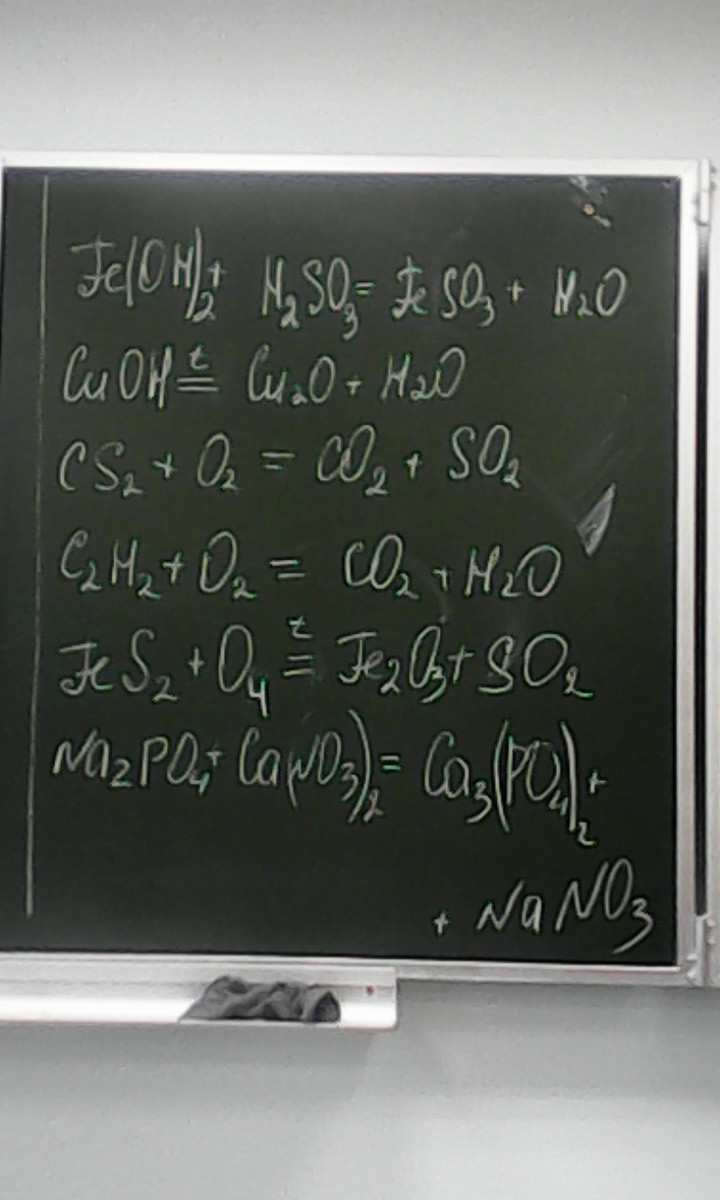 Fe(OH)₂ + H₂SO₃ = FeSO₃ + H₂O
CuOH =ᵗ Cu₂O + H₂O
CS₂ + O₂ = CO₂ + SO₂
C₂H₂ + O₂ = CO₂ + H₂O
FeS₂ + O₄ =ᵗ Fe₂O₃ + SO₂
Na₂PO₄ + Ca(NO₃)₂ = Ca₃(PO₄)₂ +
+ NaNO₃